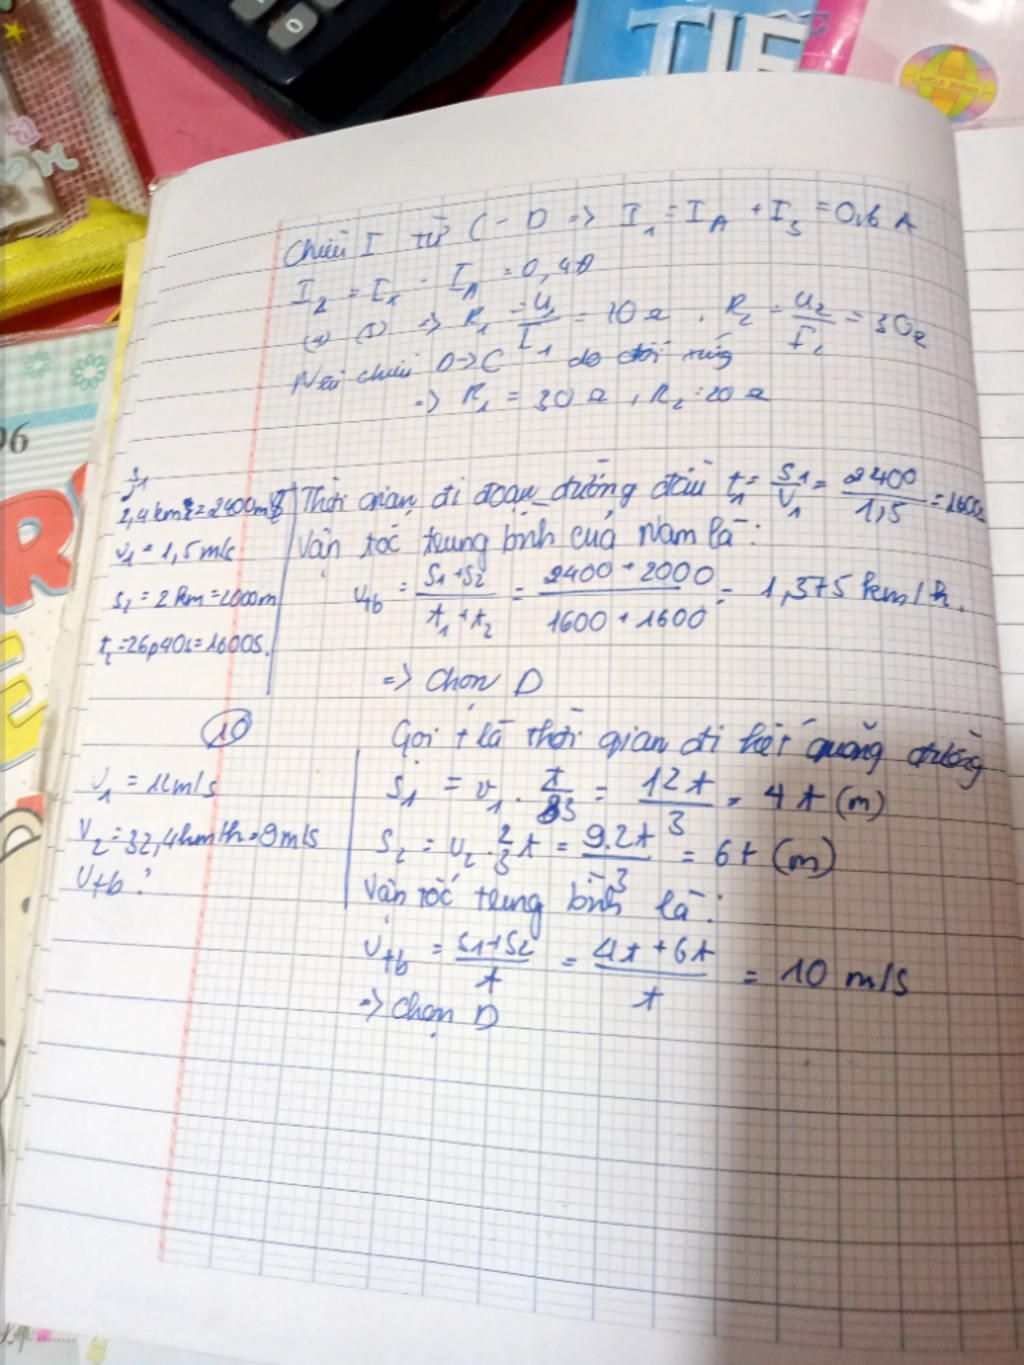 0
TIẾ
HÒA BÌNH
06
R
E
Chiều I từ C - D => I₁ = I_A + I₃ = 0,6 A
I₂ = I₁ - I_A = 0,4A
=> R₁ = U₁/I₁ = 10 Ω, R₂ = U₂/I₂ = 30Ω
Nếu chiều D->C do đối xứng
=> R₁ = 30 Ω, R₂ = 20 Ω
2,4km = 2400m
v₁ = 1,5m/s
s₂ = 2km = 2000m
t₂ = 26p40s = 1600s.
Thời gian đi đoạn đường đầu t₁ = S₁/V₁ = 2400/1,5 = 1600s
Vận tốc trung bình của Nam là:
v_tb = (S₁+S₂)/(t₁+t₂) = (2400 + 2000)/(1600 + 1600) = 1,375 km/h.
=> Chọn D
10
v₁ = 12m/s
V₂ = 32,4km/h = 9m/s
v_tb ?
Gọi t là thời gian đi hết quãng đường
S₁ = v₁ . t/3 = 12t/3 = 4t (m)
S₂ = v₂ . 2/3 t = 9.2t/3 = 6t (m)
Vận tốc trung bình là:
v_tb = (S₁+S₂)/t = (4t + 6t)/t = 10 m/s
=> Chọn D